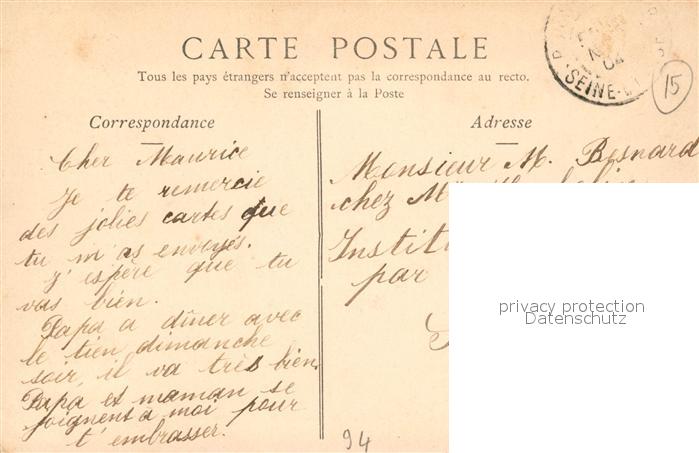 CARTE POSTALE
Tous les pays étrangers n'acceptent pas la correspondance au recto.
Se renseigner à la Poste
Correspondance
Adresse
Cher Maurice
Je te remercie
des jolies cartes que
tu m'as envoyés.
J'espère que tu
vas bien.
Papa a dîner avec
le tien dimanche
soir, il va très bien.
Papa et maman se
joignent a moi pour
t'embrasser.
Monsieur M. Besnard
chez M
Instit
par
privacy protection
Datenschutz
04
SEINE
15
94